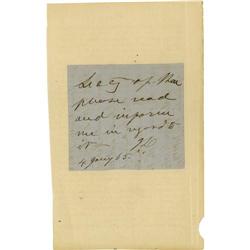 Secy of Thea
please read
and inform
me in regard to
it
4 Jany 65.